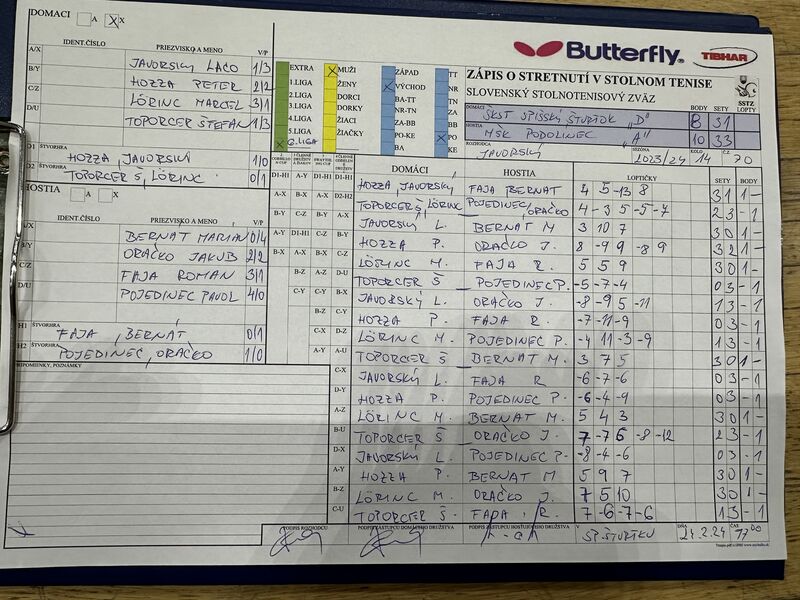 DOMACI A X X
IDENT.ČÍSLO PRIEZVISKO A MENO V/P
A/X JAVORSKÝ LACO 1/3
B/Y HOZZA PETER 2/2
C/Z LÖRINC MARCEL 3/1
D/U TOPORCER ŠTEFAN 1/3
D1 ŠTVORHRA HOZZA, JAVORSKÝ 1/0
D2 ŠTVORHRA TOPORCER Š, LÖRINC 0/1
HOSTIA A X
IDENT.ČÍSLO PRIEZVISKO A MENO V/P
BERNÁT MARIAN 0/4
B/Y ORAČKO JAKUB 2/2
C/Z FAJA ROMAN 3/1
D/U POJEDINEC PAVOL 4/0
H1 ŠTVORHRA FAJA, BERNÁT 0/1
H2 ŠTVORHRA POJEDINEC, ORAČKO 1/0
PRIPOMIENKY, POZNÁMKY
Butterfly TIBHAR
EXTRA
1.LIGA
2.LIGA
3.LIGA
4.LIGA
5.LIGA
6.LIGA
MUŽI
ŽENY
DORCI
DORKY
ŽIACI
ŽIAČKY
ZÁPAD
VÝCHOD
BA-TT
NR-TN
ZA-BB
PO-KE
TT
NR
TN
ZA
BB
PO
KE
ZÁPIS O STRETNUTÍ V STOLNOM TENISE
SLOVENSKÝ STOLNOTENISOVÝ ZVÄZ SSTZ
DOMÁCI ŠKST SPIŠSKÝ ŠTVRTOK "D" BODY 8 SETY 31
HOSTIA MŠK PODOLINEC "A" BODY 10 SETY 33
ROZHODCA JAVORSKÝ SEZÓNA 2023/24 KOLO 14 ČZ 70
DOMÁCI HOSTIA LOPTIČKY SETY BODY
HOZZA, JAVORSKÝ FAJA BERNÁT 4 5 -13 8 3 1 1 -
TOPORCER Š, LÖRINC POJEDINEC, ORAČKO 4 -3 5 -5 -7 2 3 - 1
JAVORSKÝ L. BERNÁT M 3 10 7 3 0 1 -
HOZZA P. ORAČKO J. 8 -9 9 -8 9 3 2 1 -
LÖRINC M. FAJA R. 5 5 9 3 0 1 -
TOPORCER Š POJEDINEC P. -5 -7 -4 0 3 - 1
JAVORSKÝ L. ORAČKO J. -8 -9 5 -11 1 3 - 1
HOZZA P. FAJA R. -7 -11 -9 0 3 - 1
LÖRINC M. POJEDINEC P. -4 11 -3 -9 1 3 - 1
TOPORCER Š BERNÁT M. 3 7 5 3 0 1 -
JAVORSKÝ L. FAJA R -6 -7 -6 0 3 - 1
HOZZA P. POJEDINEC P. -6 -4 -9 0 3 - 1
LÖRINC M. BERNÁT M. 5 4 3 3 0 1 -
TOPORCER Š ORAČKO J. 7 -7 6 -8 -12 2 3 - 1
JAVORSKÝ L. POJEDINEC P. -8 -4 -6 0 3 - 1
HOZZA P. BERNÁT M 5 9 7 3 0 1 -
LÖRINC M. ORAČKO J. 7 5 10 3 0 1 -
TOPORCER Š. FAJA R. 7 -6 -7 -6 1 3 - 1
PODPIS ROZHODCU PODPIS ZÁSTUPCU DOMÁCEHO DRUŽSTVA PODPIS ZÁSTUPCU HOSŤUJÚCEHO DRUŽSTVA V SP. ŠTVRTKU DŇA 24.2.24 ČAS 17 00